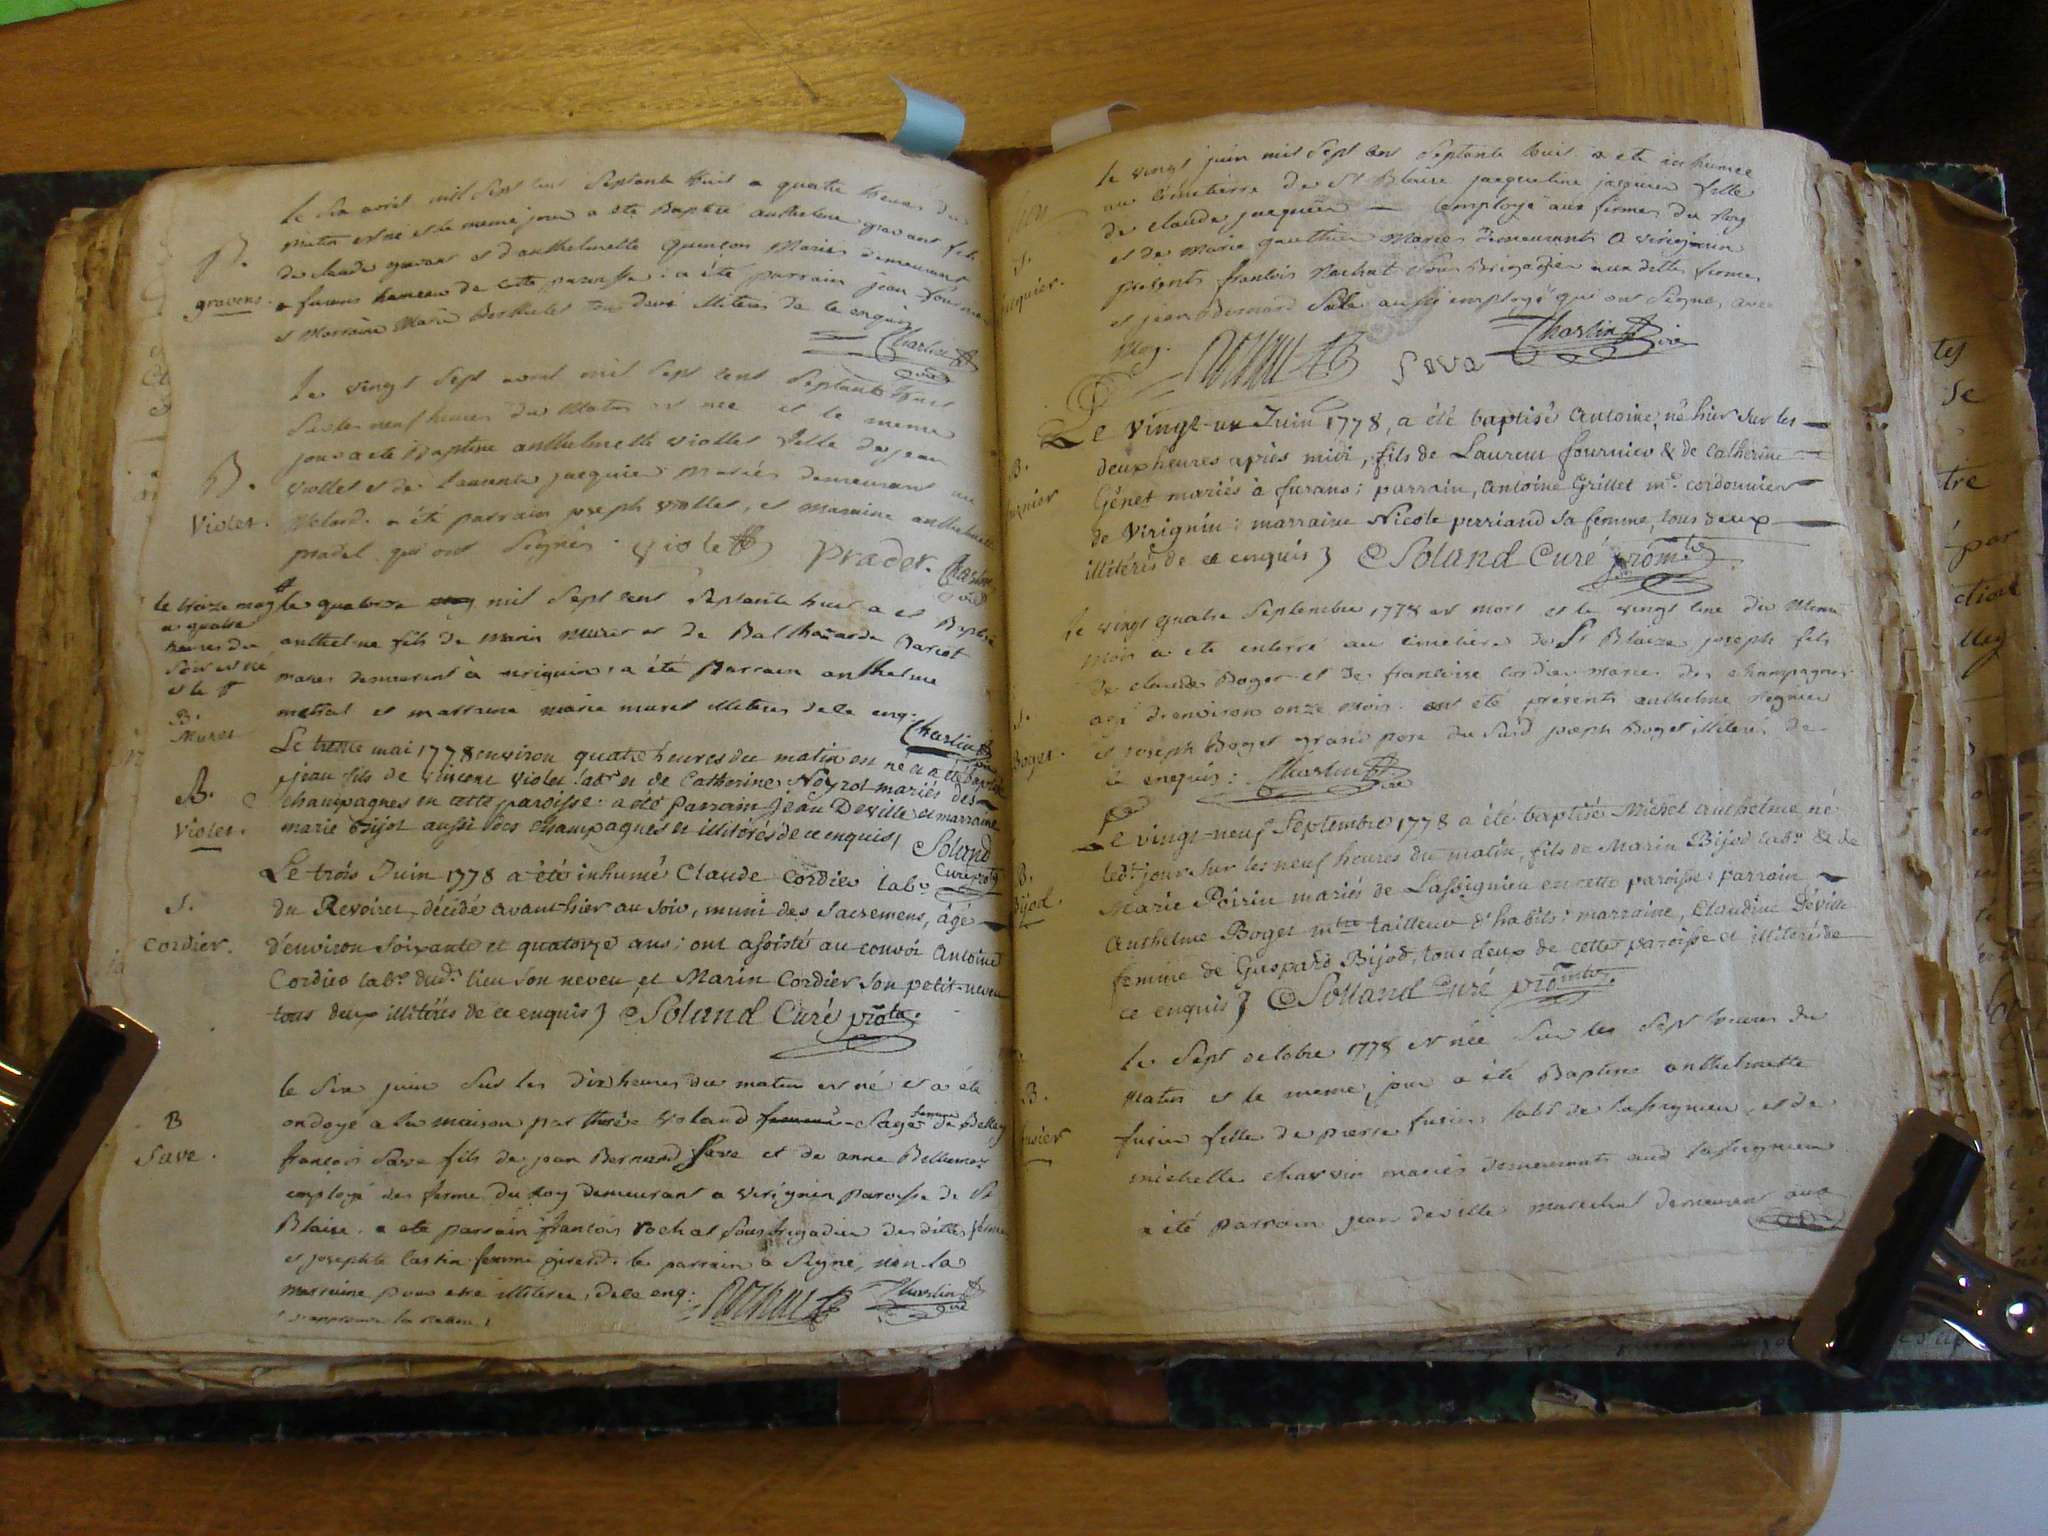 le six avril mil sept cent septante huit a quatre heures du
matin est né et le meme jour a été Baptisé anthelme gravant fils
de claude gravant et d'anthelmette Quinson Mariés demeurant
a furans hameau de cette paroisse : a été parrain jean
et Marraine Marie Berthelet tou deux illiteres de ce enquis
Charlin
B.
gravens.
le vingt sept avril mil sept cent septante huit
sur les neuf heures du Matin est née et le meme
jour a été Baptisée anthelmette viollet fille de jean
viollet et de laurente jacquier mariés demeurant au
a été parrain joseph viollet, et marraine anthelmette
pradel qui ont signés. violet prader. Charlin
B.
Violet.
le quatorze mil sept cent septante huit a été Baptisé
anthelme fils de marin muret et de Balthazarde Dariot
mariés demeurant à virignin, a été Parrain anthelme
métral et marraine marie muret illiteres de ce enq.
Charlin
le treize may
a quatre
heures du
soir est né
et le
B.
Muret
Le trente mai 1778 environ quatre heures du matin est né et a été baptisé
jean fils de vincent violet labr. et de Catherine Neyrot mariés des
champagnes en cette paroisse : a été Parrain Jean Deville et marraine
marie Bijot aussi des champagnes et illitérés de ce enquis
Soland
Curé
B.
Violet.
Le trois Juin 1778 a été inhumé Claude Cordier labr.
du Revoiret, décédé avant hier au soir, muni des sacremens, âgé
d'environ soixante et quatorze ans : ont assisté au convoi Antoine
Cordier labr. dud. lieu son neveu, et Marin Cordier son petit-neveu
tous deux illitérés de ce enquis Soland Curé promtr.
S.
Cordier.
le six juin sur les dix heures du matin est né et a été
ondoyé a la maison par Voland sage femme de Belley
françois Save fils de jean Bernard Save et de anne Bellemar
employé des ferme du Roy demeurant a virignin paroisse de St
Blaise. a été parrain françois rochat sousbrigadier desdittes fermes
et josephte Castin femme girerd. le parrain a signé, non la
marraine pour etre illiterée, de ce enq:
Charlin
B
Save.
le vingt juin mil sept cent septante huit a été inhumée
au cimetierre de St Blaise jacqueline jacquier fille
de claude jacquier — employé aux fermes du Roy
et de Marie gauthier Mariés demeurants a virignin
présents francois Rochat sous Brigadier aux dittes fermes
et jean Bernard Save aussi employé qui ont signé, avec
Moy.
Save Charlin
S.
jacquier.
Le vingt-un Juin 1778, a été baptisé Antoine, né hier sur les
deux heures après midi, fils de Laurent fournier & de Catherine
Génet mariés à furans : parrain, Antoine Grillet md. cordonnier
de Virignin : marraine Nicole perriand sa femme, tous deux
illitérés de ce enquis Soland Curé promtr.
B.
le vingt quatre septembre 1778 est mort et le vingt cinq du meme
mois a été enterré au cimetiere de St Blaize joseph fils
de claude Boget et de francoise cordier mariés des champagnes
agé d'environ onze mois ont été présents anthelme Regnier
et joseph Boget grand pere dudid joseph Boget illiterés de
ce enquis : Charlin
S.
Boget.
Le vingt-neuf Septembre 1778 a été baptisé Michel Anthelme, né
led. jour sur les neuf heures du matin, fils de Marin Bijod labr. & de
Marie Poirin mariés de Lassignieu en cette paroisse : parrain
Anthelme Boget mtre tailleur d'habits : marraine, Claudine Déville
femme de Gaspard Bijod, tous deux de cette paroisse et illitérés de
ce enquis Solland Curé promtr.
B.
Bijod.
le sept octobre 1778 est née sur les sept heures du
Matin et le meme jour a été Baptisée anthelmette
fusier fille de pierre fusier labr de lassignieu et de
michelle charvin mariés demeurants aud lassignieu
a été Parrain jean deville marechal demeurant aux
B.
fusier